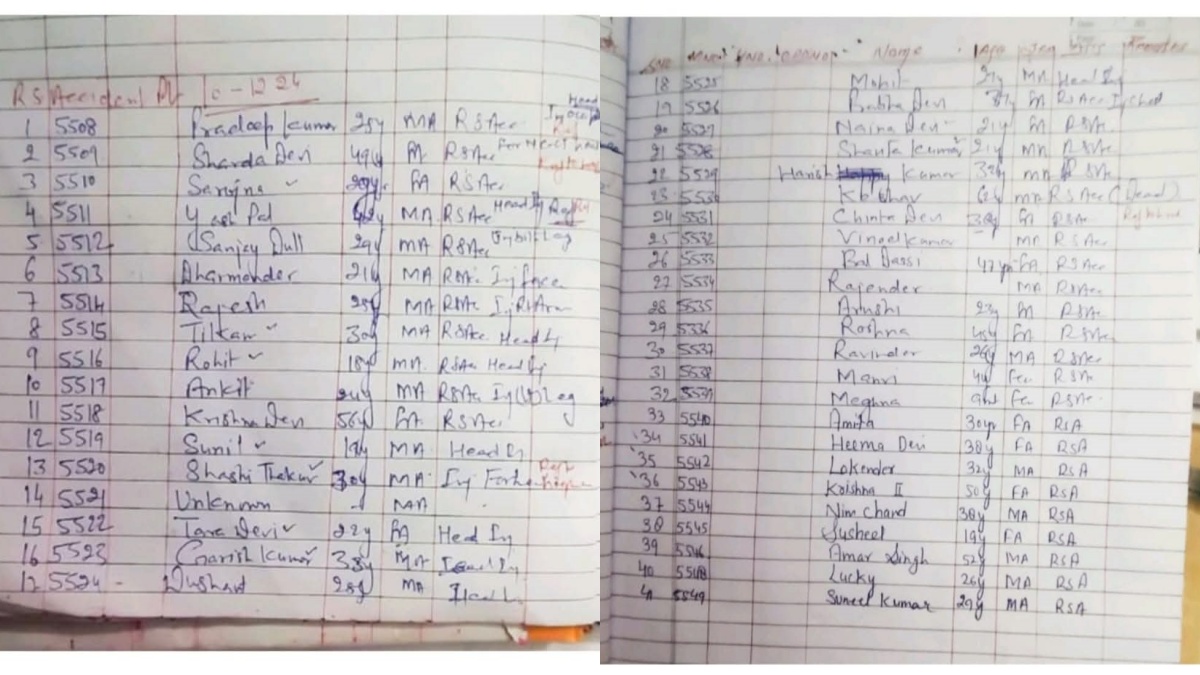 RS Accident Dt 10-12 24
1 5508 Pradeep Kumar 25y MA RSAcc
2 5509 Sharda Devi 49y FA RSAcc
3 5510 Sanjna FA RSAcc
4 5511 Yash Pal 42y MA RSAcc Head Inj
5 5512 Sanjay Dull 29y MA RSAcc Leg
6 5513 Dharmender 21y MA RSAc Inj face
7 5514 Rajesh 25y MA RSAc Inj Rt Arm
8 5515 Tilkar 30y MA RSAcc Head Ij
9 5516 Rohit 18y MA RSAcc Head Ij
10 5517 Ankit 24y MA RSAcc Inj Leg
11 5518 Krishna Devi 56y FA RSAcc
12 5519 Sunil 19y MA Head Ij
13 5520 Shashi Thakur 30y MA Inj
14 5521 Unknown MA
15 5522 Tara Devi 22y FA Head Inj
16 5523 Garish Kumar 38y MA Head Inj
17 5524 - Dushard 28y MA Head
SNO Name Age Sex Remarks
18 5525 Mohit 21y MA Head Inj
19 5526 FA RSAcc
20 5527 Naina Devi 21y FA RSAc
21 5528 Shanta Kumar 21y MA RSAc
22 5529 Harish Kumar 32y MA RSAc
23 5530 MA RSAcc (Dead)
24 5531 Chinta Devi 38y FA RSAc
25 5532 Vinod Kumar MA RSAcc
26 5533 Bal Dassi 47yr FA RSAcc
27 5534 Rajender MA RSAcc
28 5535 Arushi 23y FA RSAc
29 5536 Roshna 45y FA RSAcc
30 5537 Ravinder 26y MA RSAcc
31 5538 Manvi 4y Fec RSAc
32 5539 Meghna Fec RSAc
33 5540 Amita 30yr FA RSA
34 5541 Heema Devi 38y FA RSA
35 5542 Lokender 32y MA RSA
36 5543 Krishna II 50y FA RSA
37 5544 Nim Chand 38y MA RSA
38 5545 Susheel 19y FA RSA
39 5546 Amar Singh 52y MA RSA
40 5548 Lucky 26y MA RSA
41 5549 Suneel Kumar 29y MA RSA